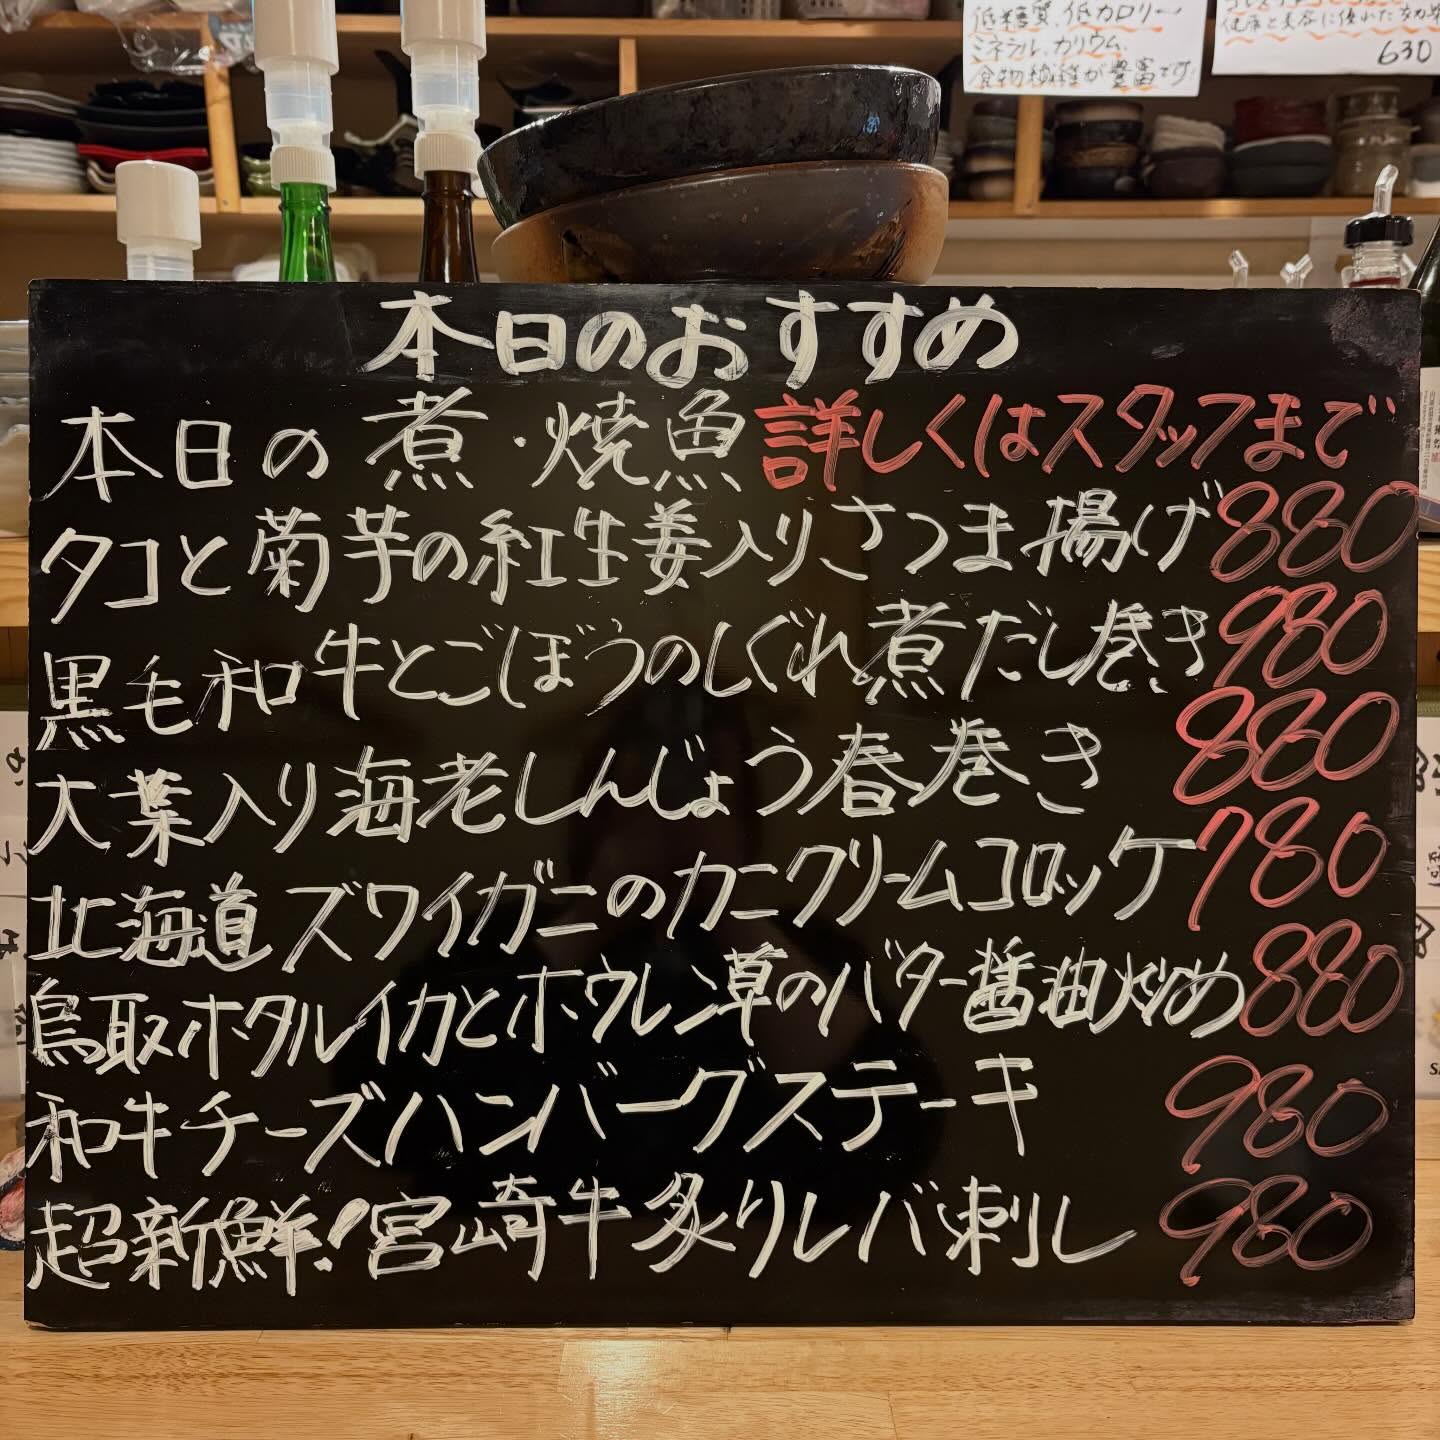 低糖質、低カロリー
ミネラル、カリウム、
食物繊維が豊富です!
630
本日のおすすめ
本日の煮・焼魚 詳しくはスタッフまで
タコと菊芋の紅生姜入りさつま揚げ 880
黒毛和牛とごぼうのしぐれ煮だし巻き 980
大葉入り海老しんじょう春巻き 880
北海道ズワイガニのカニクリームコロッケ 780
鳥取ホタルイカとホウレン草のバター醤油炒め 880
和牛チーズハンバーグステーキ 980
超新鮮!宮崎牛炙りレバ刺し 980